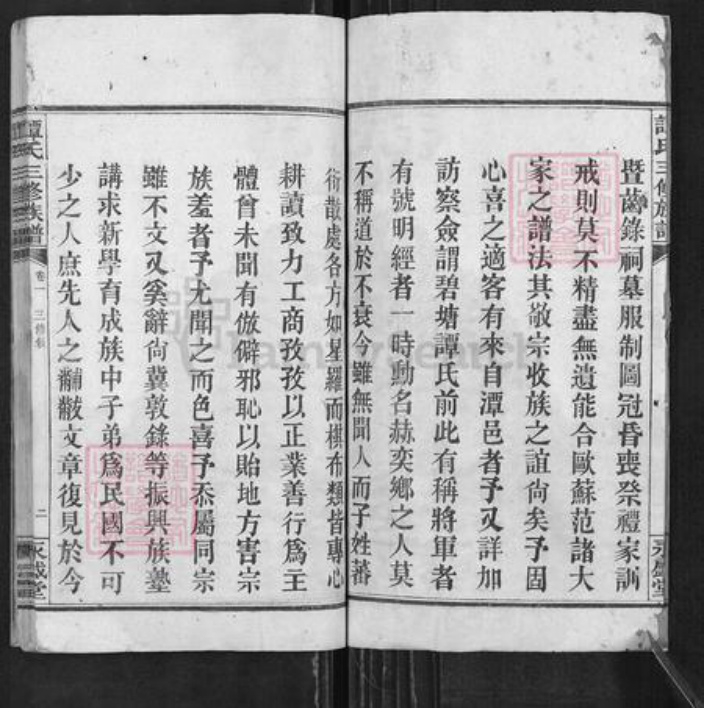 暨齒錄祠墓服制圖冠昏喪祭禮家訓
戒則莫不精盡無遺能合歐蘇范諸大
家之譜法其敬宗收族之誼尙矣予固
心喜之適客有來自潭邑者予又詳加
訪察僉謂碧塘譚氏前此有稱將軍者
有號明經者一時勳名赫奕鄉之人莫
不稱道於不衰今雖無聞人而子姓蕃
衍散處各方如星羅而棋布類皆專心
耕讀致力工商孜孜以正業善行爲主
體曾未聞有倣僻邪恥以貽地方害宗
族羞者予尤聞之而色喜予忝屬同宗
雖不文又奚辭尙冀敦錄等振興族塾
講求新學育成族中子弟爲民國不可
少之人庶先人之黼黻文章復見於今
譚氏三修族譜
卷一
二
永盛堂
譚氏三修族譜
永盛堂